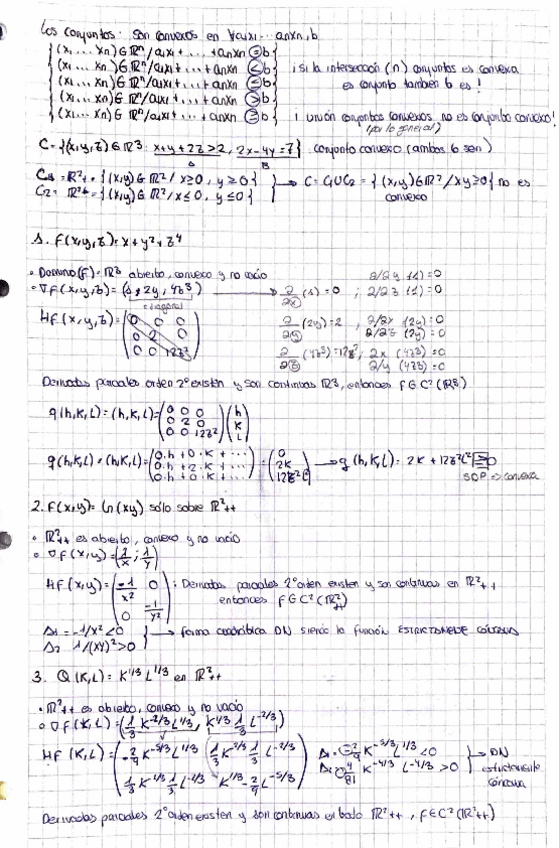 Los conjuntos: son convexos en ∀a1x1 ... anxn, b
{(x1 ... xn) ∈ ℝⁿ / a1x1 + ... + anxn = b}
{(x1 ... xn) ∈ ℝⁿ / a1x1 + ... + anxn < b} ¡ si la intersección (n) conjuntos es convexa
{(x1 ... xn) ∈ ℝⁿ / a1x1 + ... + anxn ≤ b} es conjunto también b es !
{(x1 ... xn) ∈ ℝⁿ / a1x1 + ... + anxn > b}
{(x1 ... xn) ∈ ℝⁿ / a1x1 + ... + anxn ≥ b} ¡ unión conjuntos convexos no es conjunto convexo!
(por lo general)
C = {(x,y,z) ∈ ℝ3: x+y+2z>2, 2x-4y=7} conjunto convexo (ambos b son)
C1 = ℝ²+ = {(x,y) ∈ ℝ² / x≥0, y≥0}
C2 = {(x,y) ∈ ℝ² / x≤0, y≤0} → C = C1∪C2 = {(x,y) ∈ ℝ² / xy≥0} no es
convexo
1. F(x,y,z) = x+y²+z⁴
• Dominio(f) = ℝ³ abierto, convexo y no vacío
• ∇F(x,y,z) = (1, 2y, 4z³) → ∂/∂x (1) = 0 ; ∂/∂y (1) = 0
∂/∂z (1) = 0
diagonal
HF(x,y,z) = (0 0 0
0 2 0
0 0 12z²)
∂/∂y (2y) = 2, ∂/∂x (2y) = 0
∂/∂z (2y) = 0
∂/∂z (4z³) = 12z², ∂/∂x (4z³) = 0
∂/∂y (4z³) = 0
Derivadas parciales orden 2º existen y son continuas ℝ³, entonces f ∈ C²(ℝ³)
q(h,k,L) = (h,k,L) = (0 0 0
0 2 0
0 0 12z²) (h
k
L)
q(h,k,L) = (h,k,L) = (0·h + 0·k + ...
0·h + 2·k + ...
0·h + 0·k + ...) = (0
2k
12z²L) → q(h,k,L) = 2k + 12z²L² ≥ 0
SDP ⇒ convexa
2. F(x,y) = Ln(xy) sólo sobre ℝ²++
• ℝ²++ es abierto, convexo y no vacío
• ∇F(x,y) = (1/x ; 1/y)
HF(x,y) = (-1/x² 0
0 -1/y²) ; Derivadas parciales 2º orden existen y son continuas en ℝ²++
entonces f ∈ C²(ℝ²++)
Δ1 = -1/x² < 0
Δ2 1/(xy)² > 0 → forma cuadrática DN siendo la función ESTRICTAMENTE CÓNCAVA
3. Q(K,L) = K^1/3 L^1/3 en ℝ²++
• ℝ²++ es abierto, convexo y no vacío
• ∇F(K,L) = (1/3 K^-2/3 L^1/3, K^1/3 1/3 L^-2/3)
HF(K,L) = (-2/9 K^-5/3 L^1/3 1/3 K^-2/3 1/3 L^-2/3
1/3 K^-2/3 1/3 L^-2/3 K^1/3 -2/9 L^-5/3)
Δ1 = -2/9 K^-5/3 L^1/3 < 0
K^-4/3 L^-4/3 > 0 → DN
estrictamente
cóncava
Derivadas parciales 2º orden existen y son continuas en todo ℝ²++, f ∈ C²(ℝ²++)